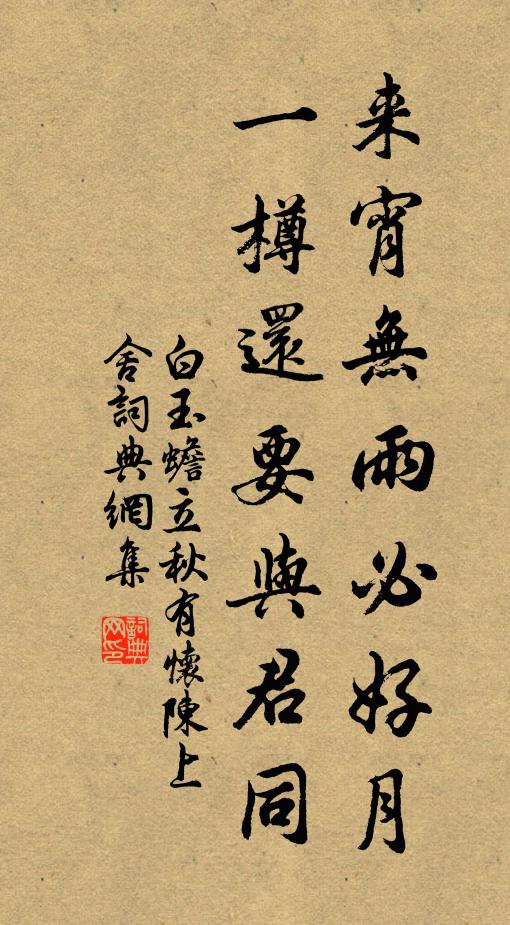 来宵無雨必好月
一樽還要與君同
白玉蟾立秋有懷陳上
舍詞典網集
詞典网印